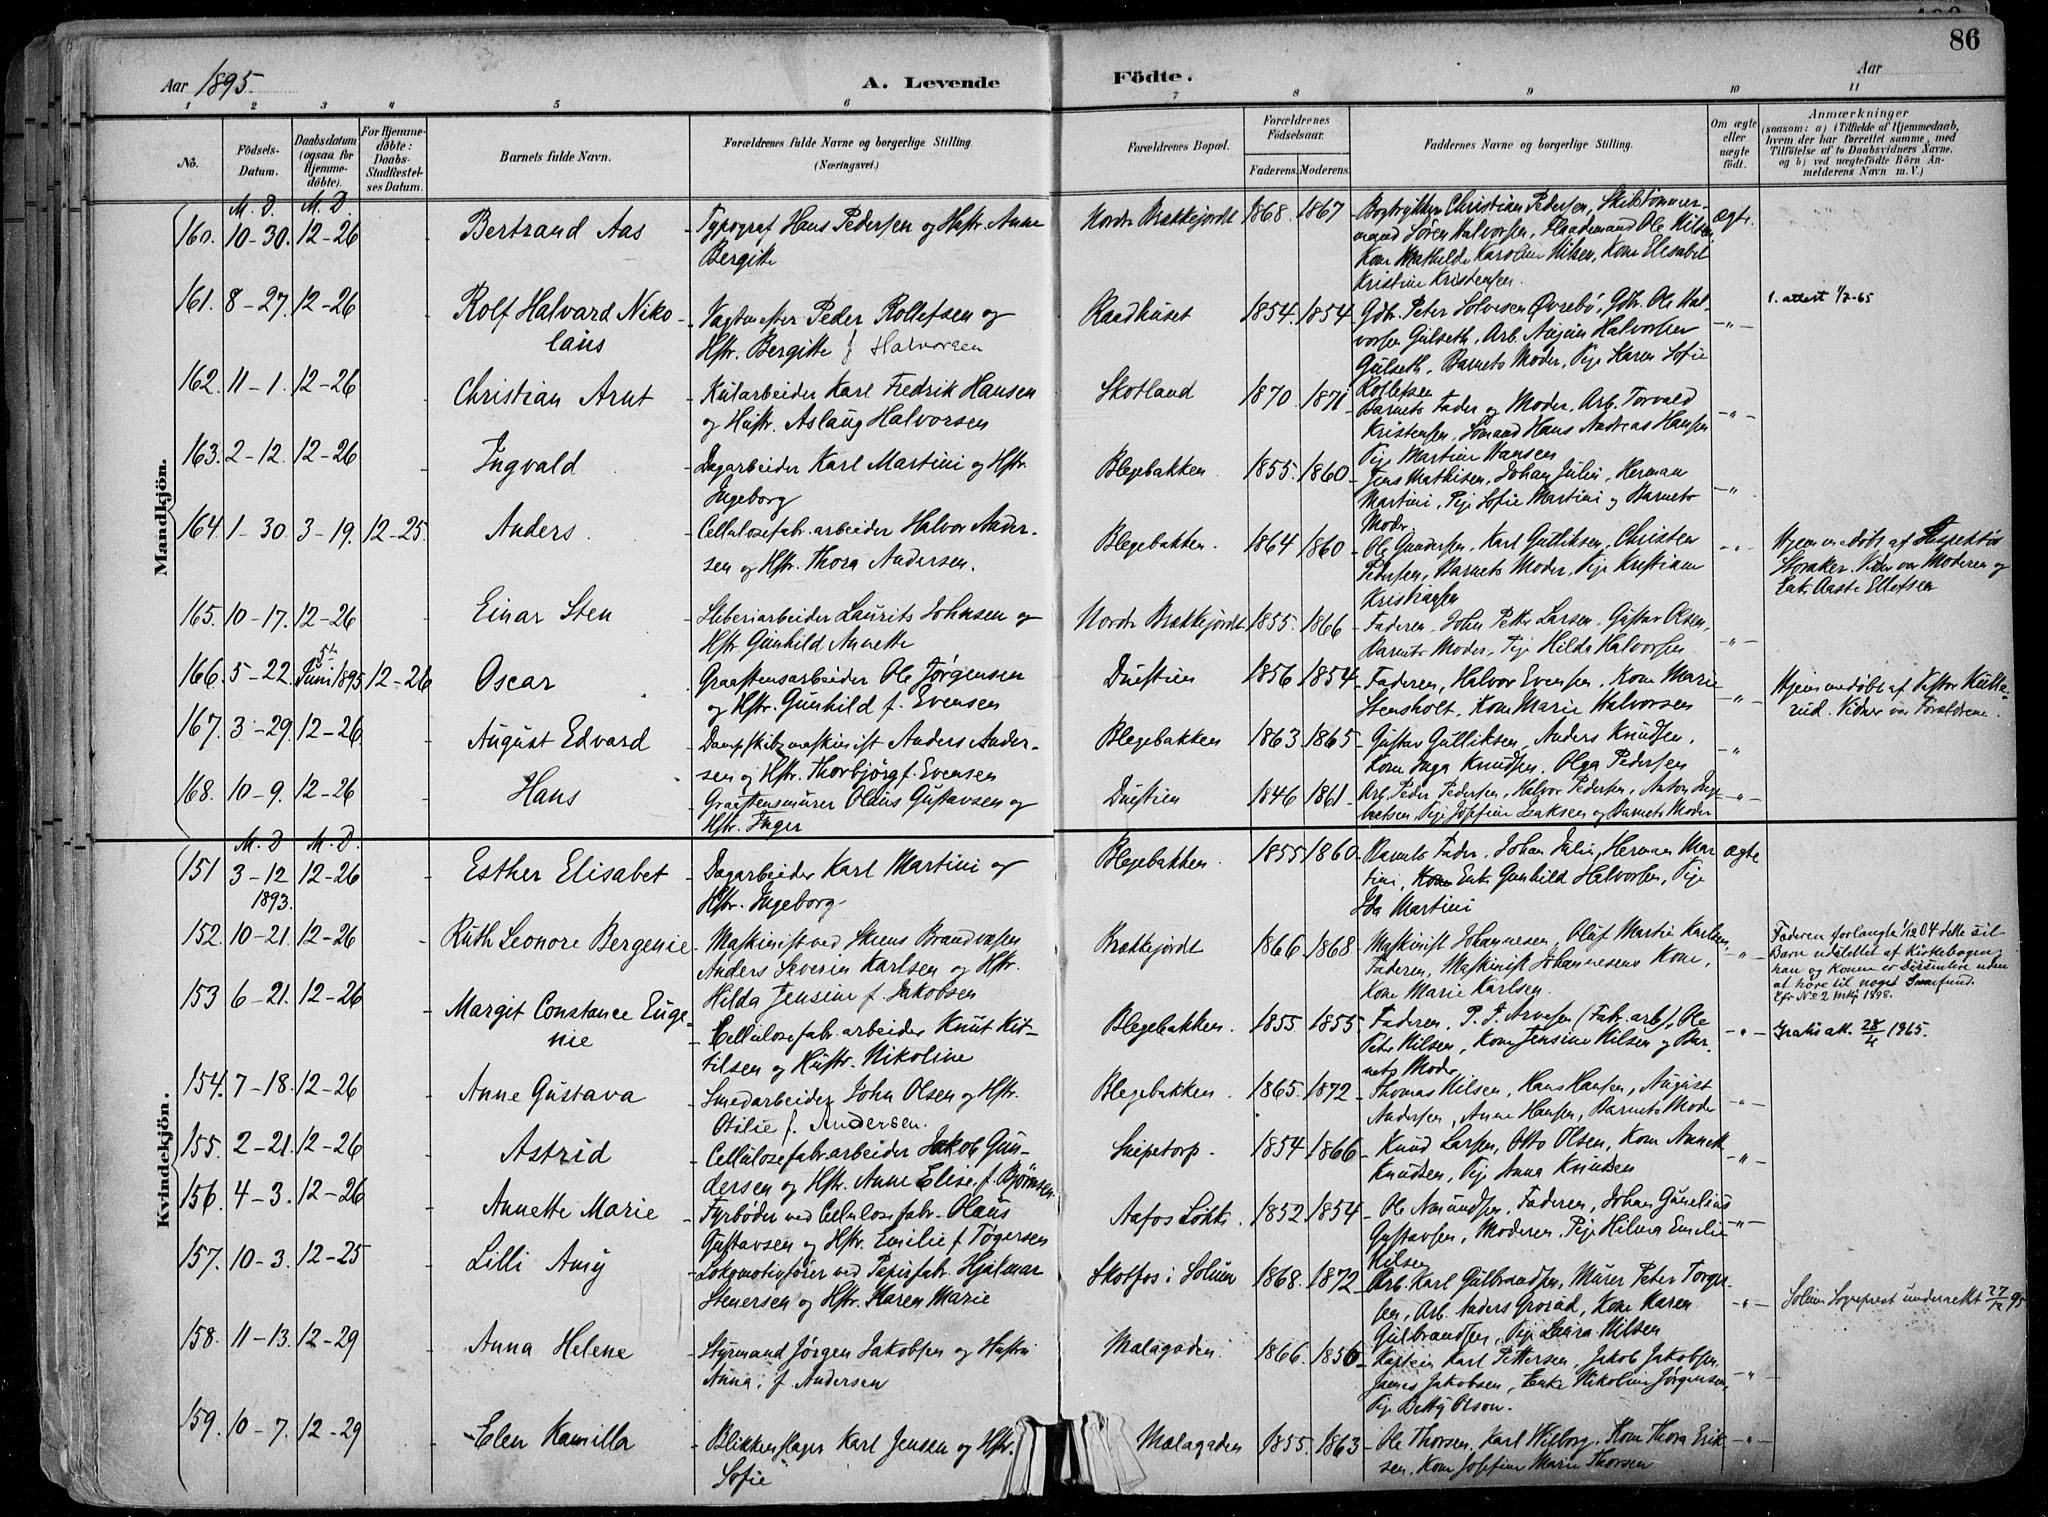 86
Aar 1895.
A. Levende
Födte.
Aar
1 2 3 4 5 6 7 8 9 10 11
No.
Födsels-Datum.
Daabsdatum (ogsaa for Hjemmedöbte).
For Hjemmedöbte: Daabs-Stadfæstelses Datum.
Barnets fulde Navn.
Forældrenes fulde Navne og borgerlige Stilling.
(Næringsvei.)
Forældrenes Bopæl.
Forældrenes Födselsaar.
Faderens. Moderens.
Faddernes Navne og borgerlige Stilling.
Om ægte eller uægte födt.
Anmærkninger
(saasom: a) i Tilfælde af Hjemmedaab,
hvem der har forrettet samme, med
Tilföielse af to Daabsvidners Navne,
og b) ved uægtefödte Börn Anmelderens Navn m. V.)
Mandkjön.
M. D. M. D
160. 10-30. 12-26 - Bertrand Aas - Typograf Hans Pedersen og Hstr. Anne
Bergitte
Nordr Brækkejordt 1868 - 1867 - Bogtrykker Christian Pedersen, Skibstømmer-
mand Sören Halvorsen, Flaademand Ole Nilsen,
Kone Mathilde Karoline Nilsen, Kone Elisabet
Kristine Kristensen.
ægte.
161. 8-27. 12-26 Rolf Halvard Niko-
laus
Vagtmester Peder Rollefsen og
Hstr. Bergitte f Halvorsen
Raadhuset 1854. 1854 - Gdbr. Peter Solvesen Øvrebö, Gdbr. Ole Hal-
vorsen Gulseth, Arb. Halvorsen
Gulseth, Barnets Moder, Pige Karen Sofie
Rollefsen
-"-
1. attest 1/2-65
162. 11-1. 12-26 - Christian Arnt - Kularbeider Karl Fredrik Hansen
og Hustr. Aslaug Halvorsen
Skotland 1870. 1871 - Barnets Fader og Moder, Arb. Torvald
Kristensen, Sömand Hans Andreas Hansen
Pige Martine Hansen
-"-
163. 2-12. 12-26 - Ingvald - Dagarbeider Karl Martini og Hstr.
Ingeborg
Blegebakken 1855. 1860 - Jens Mathisen, Johan Julin, Herman
Martini, Pige Sofie Martini og Barnets
Moder
-"-
164. 1-30. 3-19. 12-25. Anders. - Cellulosefabr.arbeider Halvor Ander-
sen og Hstr. Thora Andersen.
Blegebakken. 1864 1860 - Ole Gundersen, Karl Gulliksen, Christen
Pedersen, Barnets Moder, Pige Kristiane
Kristiansen
-"-
Hjemmedöbt af Inspektör
Storaker. Vidner var Moderen og
Enke Aaste Ellefsen
165. 10-17. 12-26 Einar Sten - Sliberiarbeider Laurits Johnsen og
Hstr Gunhild Annette
Nordr Brækkejordt 1855. 1866 - Faderen, John Petter Larsen, Gustav Olsen,
Barnets Moder, Pige Hilda Halvorsen
-"-
166. 5-22. 5te Juni 1895 12-26 Oscar - Graastensarbeider Ole Jørgensen
og Hstr. Gunhild f. Evensen
Duestien 1856 1854 - Faderen, Halvor Evensen, Kone Marie
Stensholt, Kone Marie Halvorsen
-"-
Hjemmedöbt af Pastor Kulle-
rud. Vidner var Forældrene.
167. 3-29. 12-26. - August Edvard - Dampskibsmaskinist Anders Ander-
sen og Hstr. Thorbjörg f. Evensen
Blegebakken 1863 1865 - Gustav Gulliksen, Anders Knudsen,
Kone Inga Knudsen, Olga Pedersen
-"-
168. 10-9. 12-26 - Hans - Graastensmurer Olaus Gustavsen og
Hstr. Inger
Duestien 1846 1861 - Arb. Peder Pedersen, Halvor Pedersen, Anton
Pige Josefine Isaksen og Barnets Moder
-"-
Kvindekjön.
M. D M. D.
151 3-12 1893. 12-26 - Esther Elisabet - Dagarbeider Karl Martini og
Hstr. Ingeborg
Blegebakken. 1855 1860 - Barnets Fader, Johan Julin, Herman Mar
tini, Enke Gunhild Halvorsen, Pige
Ida Martini
ægte
152. 10-21. 12-26 - Ruth Leonore Bergenie - Maskinist ved Skiens Brandvæsen
Anders Severin Karlsen og Hstr.
Hilda Jensine f. Jakobsen
Brækkejordt 1866 - 1868 - Maskinist Johannesen, Oluf Martin Karlsen,
Faderen, Maskinist Johannesens Kone,
Kone Marie Karlsen.
-"-
Faderen forlangte 1/12 04 dette sit
Barn udslettet af Kirkebogen;
han og Konen er Dissentere uden
at höre til noget Samfund.
Cfr No 2 mkj 1898.
153 6-21. 12-26 - Margit Constance Euge-
nie
- Cellulosefabr.arbeider Knut Kit-
tilsen og Hustr. Nikoline
Blegebakken. 1855 - 1855 - Faderen, P. J. Arvesen (Fabr.arb), Ole
Peter Nilsen, Kone Jensine Nilsen og Bar-
nets Moder
-"-
Gratis att. 28/4 1965.
154. 7-18. 12-26 - Anne Gustava - Smedarbeider John Olsen og Hstr.
Otilie f. Andersen.
Blegebakken 1865. 1872 - Thomas Nilsen, Hans Hansen, August
Andersen, Anne Hansen, Barnets Moder
-"-
155. 2-21. 12-26 - Astrid - Cellulosefabr.arbeider Jakob Gun-
dersen og Hstr. Anne Elise f. Bjørnsen
Snipetorp. 1854 1866 - Knud Larsen, Otto Olsen, Kone Annette
Knudsen, Pige Anna Knudsen
-"-
156. 4-3. 12-26 - Annette Marie - Fyrbøder ved Cellulosefabr. Olaus
Gustavsen og Hstr. Emilie f Tøgersen
Aafos Løkke. 1852 1854 - Ole Amundsen, Faderen, Johan Gunelius
Gustavsen, Moderen, Pige Hilma Emelie
Nilsen
-"-
157. 10-3. 12-25 Lilli Amy - Lokomotivfører ved Papirfabr. Hjalmar
Stenersen og Hstr. Karen Marie
Skotfos i Solum 1868. 1872 - Arb. Karl Gulbrandsen, Murer Peter Torger-
sen, Arb. Anders Grorud, Kone Karen
Gulbrandsen, Pige Laura Nilsen
-"-
Solum Sogneprest underrettet 27/12 95
158. 11-13. 12-29 - Anna Helene - Styrmand Jørgen Jakobsen og Hustru
Anna, f Andersen
Mælagaden. 1866. 1856 - Kaptein Karl Pettersen, Jakob Jakobsen,
Jakobsen, Enke Nikoline Jørgensen,
Pige Betty Olson.
-"-
159. 10-7. 12-29 - Elen Kamilla - Blikkenslager Karl Jensen og Hstr.
Sofie
Mælagaden 1855. 1863 - Ole Thorsen, Karl Wiborg, Kone Thora Erik
sen, Kone Josefine Marie Thorsen
-"-